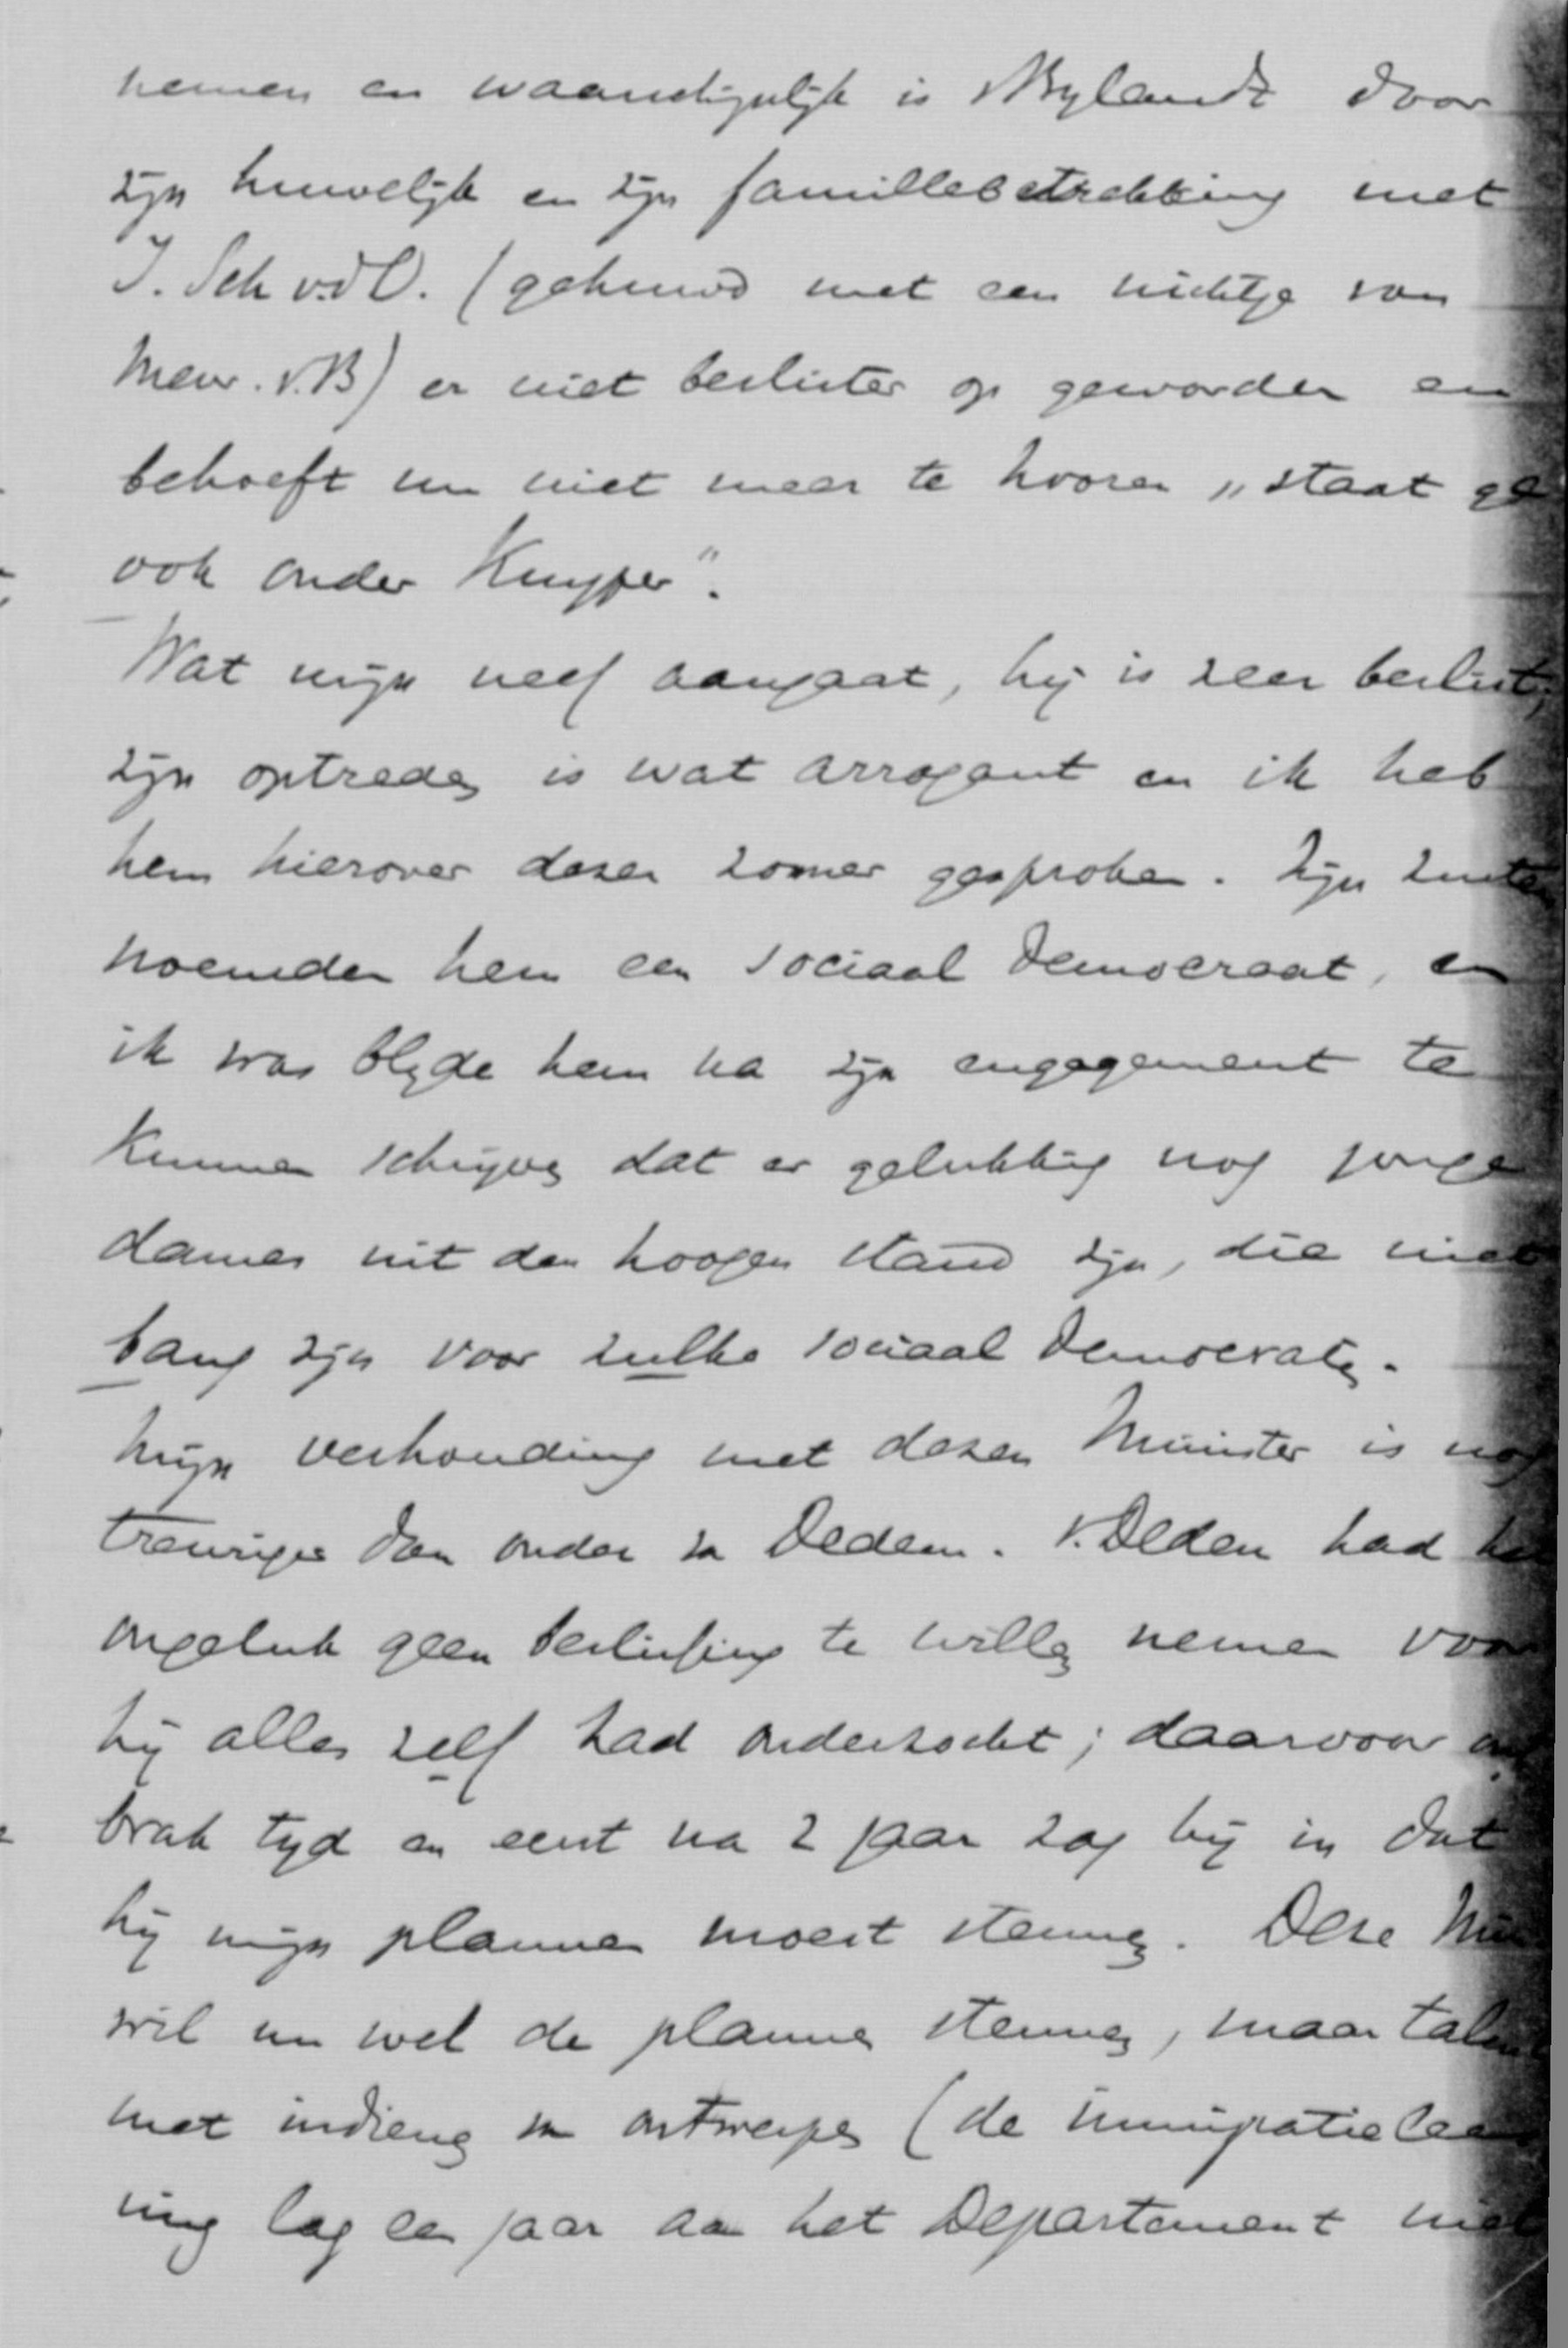 nemen en waarschijnlijk is v. Bylandt door
zijn huwelijk en zijn famillebetrekking met
I. Sch v.d O. (gehuwd met een nichtje van
Mevr. v.B) er niet beslister op geworden en
behoeft nu niet meer te hooren „staat ge
ook onder Kuyper".
Wat mijn neef aangaat, hij is zeer beslist,
zijn optreden is wat arrogant en ik heb
hem hierover dezen zomer gesproken. Zijn
noemden hem een sociaal democraat, en
ik was blyde hem na zijn engagement te
kunnen schrijven dat er gelukkig nog jonge
dames uit den hoogen stand zijn, die niet
bang zijn voor zulke sociaal democraten.
Mijn verhouding met dezen Minister is nog
treuriger dan onder v. Dedem. v. Dedem had het
ongeluk geen beslissing te willen nemen voor
hij alles zelf had onderzocht; daarvoor ont
brak tyd en eerst na 2 jaar zag hij in dat
hij mijn plannen moest steunen. Deze Min
wil nu wel de plannen steunen, maar talmt
met indienen van ontwerpen (de immigratie lee
ning lag een jaar aan het Departement niet